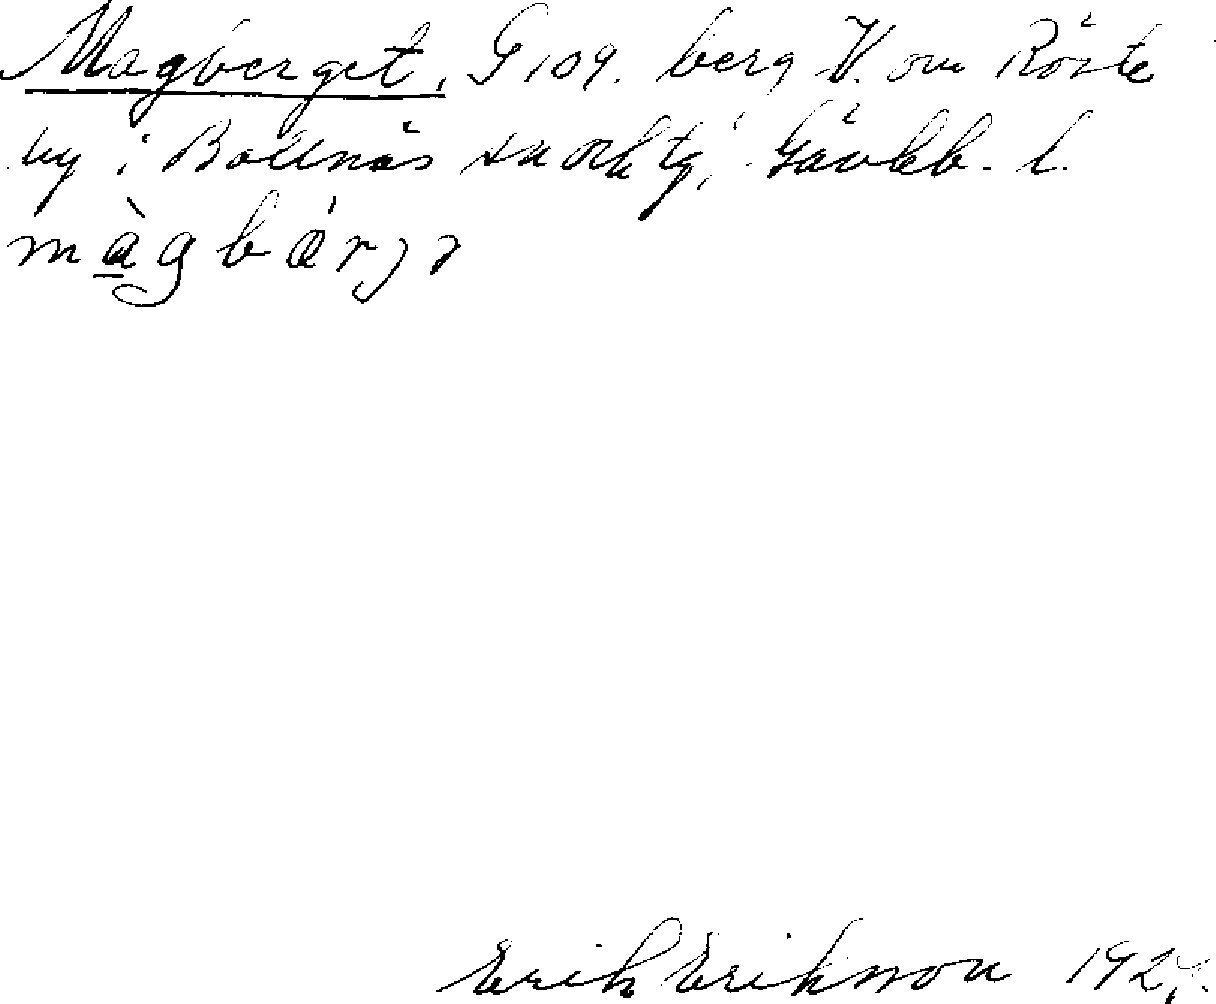 Magberget, G 109. berg V. om Röste
by i Bollnäs sn och tg, Gävleb. l.
màgbárjə
Erik Erikson